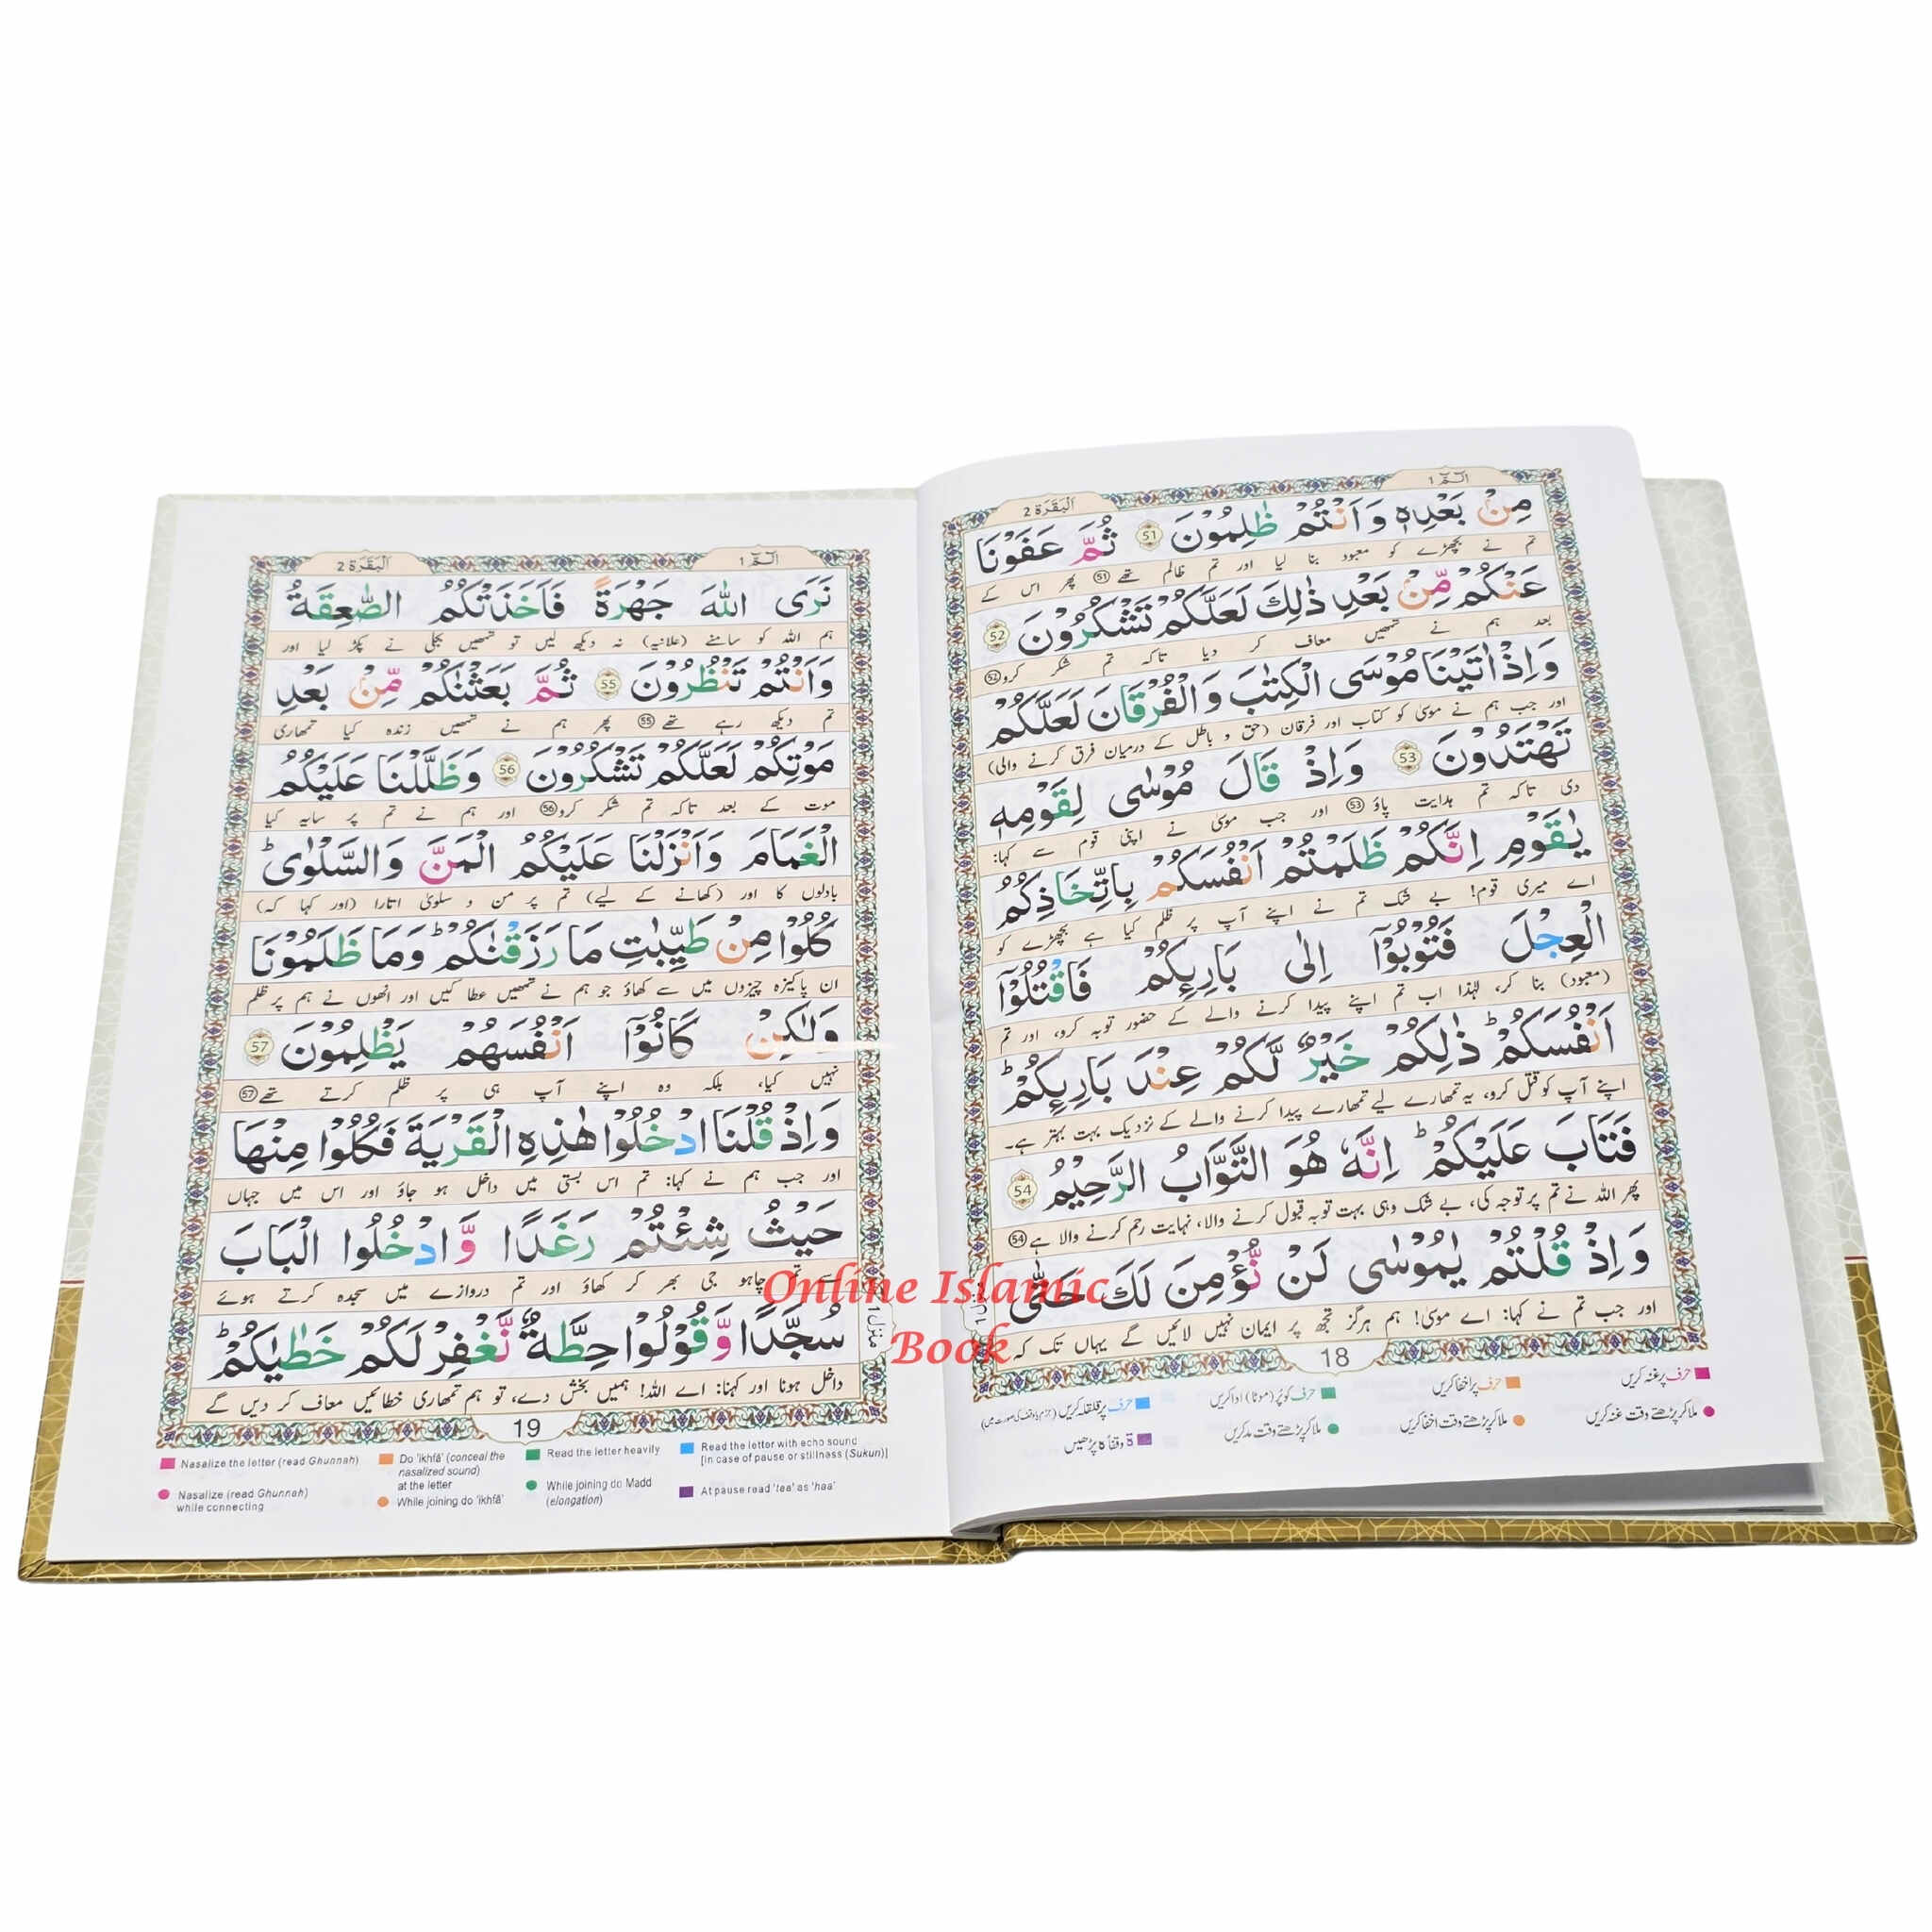 الٓمّٓ 1
اَلْبَقَرَة 2
مِنْۢ بَعْدِهٖ وَ اَنْتُمْ ظٰلِمُوْنَ 51 ثُمَّ عَفَوْنَا
تم نے بچھڑے کو معبود بنا لیا اور تم ظالم تھے 51 پھر اس کے
عَنْكُمْ مِّنْۢ بَعْدِ ذٰلِكَ لَعَلَّكُمْ تَشْكُرُوْنَ 52
بعد ہم نے تمھیں معاف کر دیا تاکہ تم شکر کرو 52
وَ اِذْ اٰتَيْنَا مُوْسَى الْكِتٰبَ وَ الْفُرْقَانَ لَعَلَّكُمْ
اور جب ہم نے موسیٰ کو کتاب اور فرقان (حق و باطل کے درمیان فرق کرنے والی)
تَهْتَدُوْنَ 53 وَ اِذْ قَالَ مُوْسٰى لِقَوْمِهٖ
دی تاکہ تم ہدایت پاؤ 53 اور جب موسیٰ نے اپنی قوم سے کہا:
يٰقَوْمِ اِنَّكُمْ ظَلَمْتُمْ اَنْفُسَكُمْ بِاتِّخَاذِكُمُ
اے میری قوم! بے شک تم نے اپنے آپ پر ظلم کیا ہے بچھڑے کو
الْعِجْلَ فَتُوْبُوْۤا اِلٰى بَارِىِٕكُمْ فَاقْتُلُوْۤا
(معبود) بنا کر، لہٰذا اب تم اپنے پیدا کرنے والے کے حضور توبہ کرو، اور تم
اَنْفُسَكُمْ ؕ ذٰلِكُمْ خَيْرٌ لَّكُمْ عِنْدَ بَارِىِٕكُمْ ؕ
اپنے آپ کو قتل کرو، یہ تمھارے لیے تمھارے پیدا کرنے والے کے نزدیک بہت بہتر ہے۔
فَتَابَ عَلَيْكُمْ ؕ اِنَّهٗ هُوَ التَّوَّابُ الرَّحِيْمُ 54
پھر اللہ نے تم پر توجہ کی، بے شک وہی بہت توبہ قبول کرنے والا، نہایت رحم کرنے والا ہے 54
وَ اِذْ قُلْتُمْ يٰمُوْسٰى لَنْ نُّؤْمِنَ لَكَ حَتّٰى
اور جب تم نے کہا: اے موسیٰ! ہم ہرگز تجھ پر ایمان نہیں لائیں گے یہاں تک کہ
18
حرف پر غنہ کریں
حرف پر اخفا کریں
حرف کو پُر (موٹا) ادا کریں
حرف پر قلقلہ کریں (جزم یا وقف کی صورت میں)
ملا کر پڑھتے وقت غنہ کریں
ملا کر پڑھتے وقت اخفا کریں
ملا کر پڑھتے وقت مد کریں
ة وقفاً ہ پڑھیں
الٓمّٓ 1
اَلْبَقَرَة 2
نَرَى اللّٰهَ جَهْرَةً فَاَخَذَتْكُمُ الصّٰعِقَةُ
ہم اللہ کو سامنے (علانیہ) نہ دیکھ لیں تو تمھیں بجلی نے پکڑ لیا اور
وَ اَنْتُمْ تَنْظُرُوْنَ 55 ثُمَّ بَعَثْنٰكُمْ مِّنْۢ بَعْدِ
تم دیکھ رہے تھے 55 پھر ہم نے تمھیں زندہ کیا تمھاری
مَوْتِكُمْ لَعَلَّكُمْ تَشْكُرُوْنَ 56 وَ ظَلَّلْنَا عَلَيْكُمُ
موت کے بعد تاکہ تم شکر کرو 56 اور ہم نے تم پر سایہ کیا
الْغَمَامَ وَ اَنْزَلْنَا عَلَيْكُمُ الْمَنَّ وَ السَّلْوٰى ؕ
بادلوں کا اور (کھانے کے لیے) تم پر من و سلویٰ اتارا (اور کہا کہ)
كُلُوْا مِنْ طَيِّبٰتِ مَا رَزَقْنٰكُمْ ؕ وَ مَا ظَلَمُوْنَا
ان پاکیزہ چیزوں میں سے کھاؤ جو ہم نے تمھیں عطا کیں اور انھوں نے ہم پر ظلم
وَ لٰكِنْ كَانُوْۤا اَنْفُسَهُمْ يَظْلِمُوْنَ 57
نہیں کیا، بلکہ وہ اپنے آپ ہی پر ظلم کرتے تھے 57
وَ اِذْ قُلْنَا ادْخُلُوْا هٰذِهِ الْقَرْيَةَ فَكُلُوْا مِنْهَا
اور جب ہم نے کہا: تم اس بستی میں داخل ہو جاؤ اور اس میں جہاں
حَيْثُ شِئْتُمْ رَغَدًا وَّ ادْخُلُوا الْبَابَ
سے تم چاہو جی بھر کر کھاؤ اور تم دروازے میں سجدہ کرتے ہوئے
سُجَّدًا وَّ قُوْلُوْا حِطَّةٌ نَّغْفِرْ لَكُمْ خَطٰيٰكُمْ ؕ
داخل ہونا اور کہنا: اے اللہ! ہمیں بخش دے، تو ہم تمھاری خطائیں معاف کر دیں گے
منزل 1
19
Nasalize the letter (read Ghunnah)
Do 'ikhfã' (conceal the
nasalized sound)
at the letter
Read the letter heavily
Read the letter with echo sound
[in case of pause or stillness (Sukun)]
Nasalize (read Ghunnah)
while connecting
While joining do 'ikhfã'
While joining do Madd
(elongation)
At pause read 'taa' as 'haa'
Online Islamic
Book